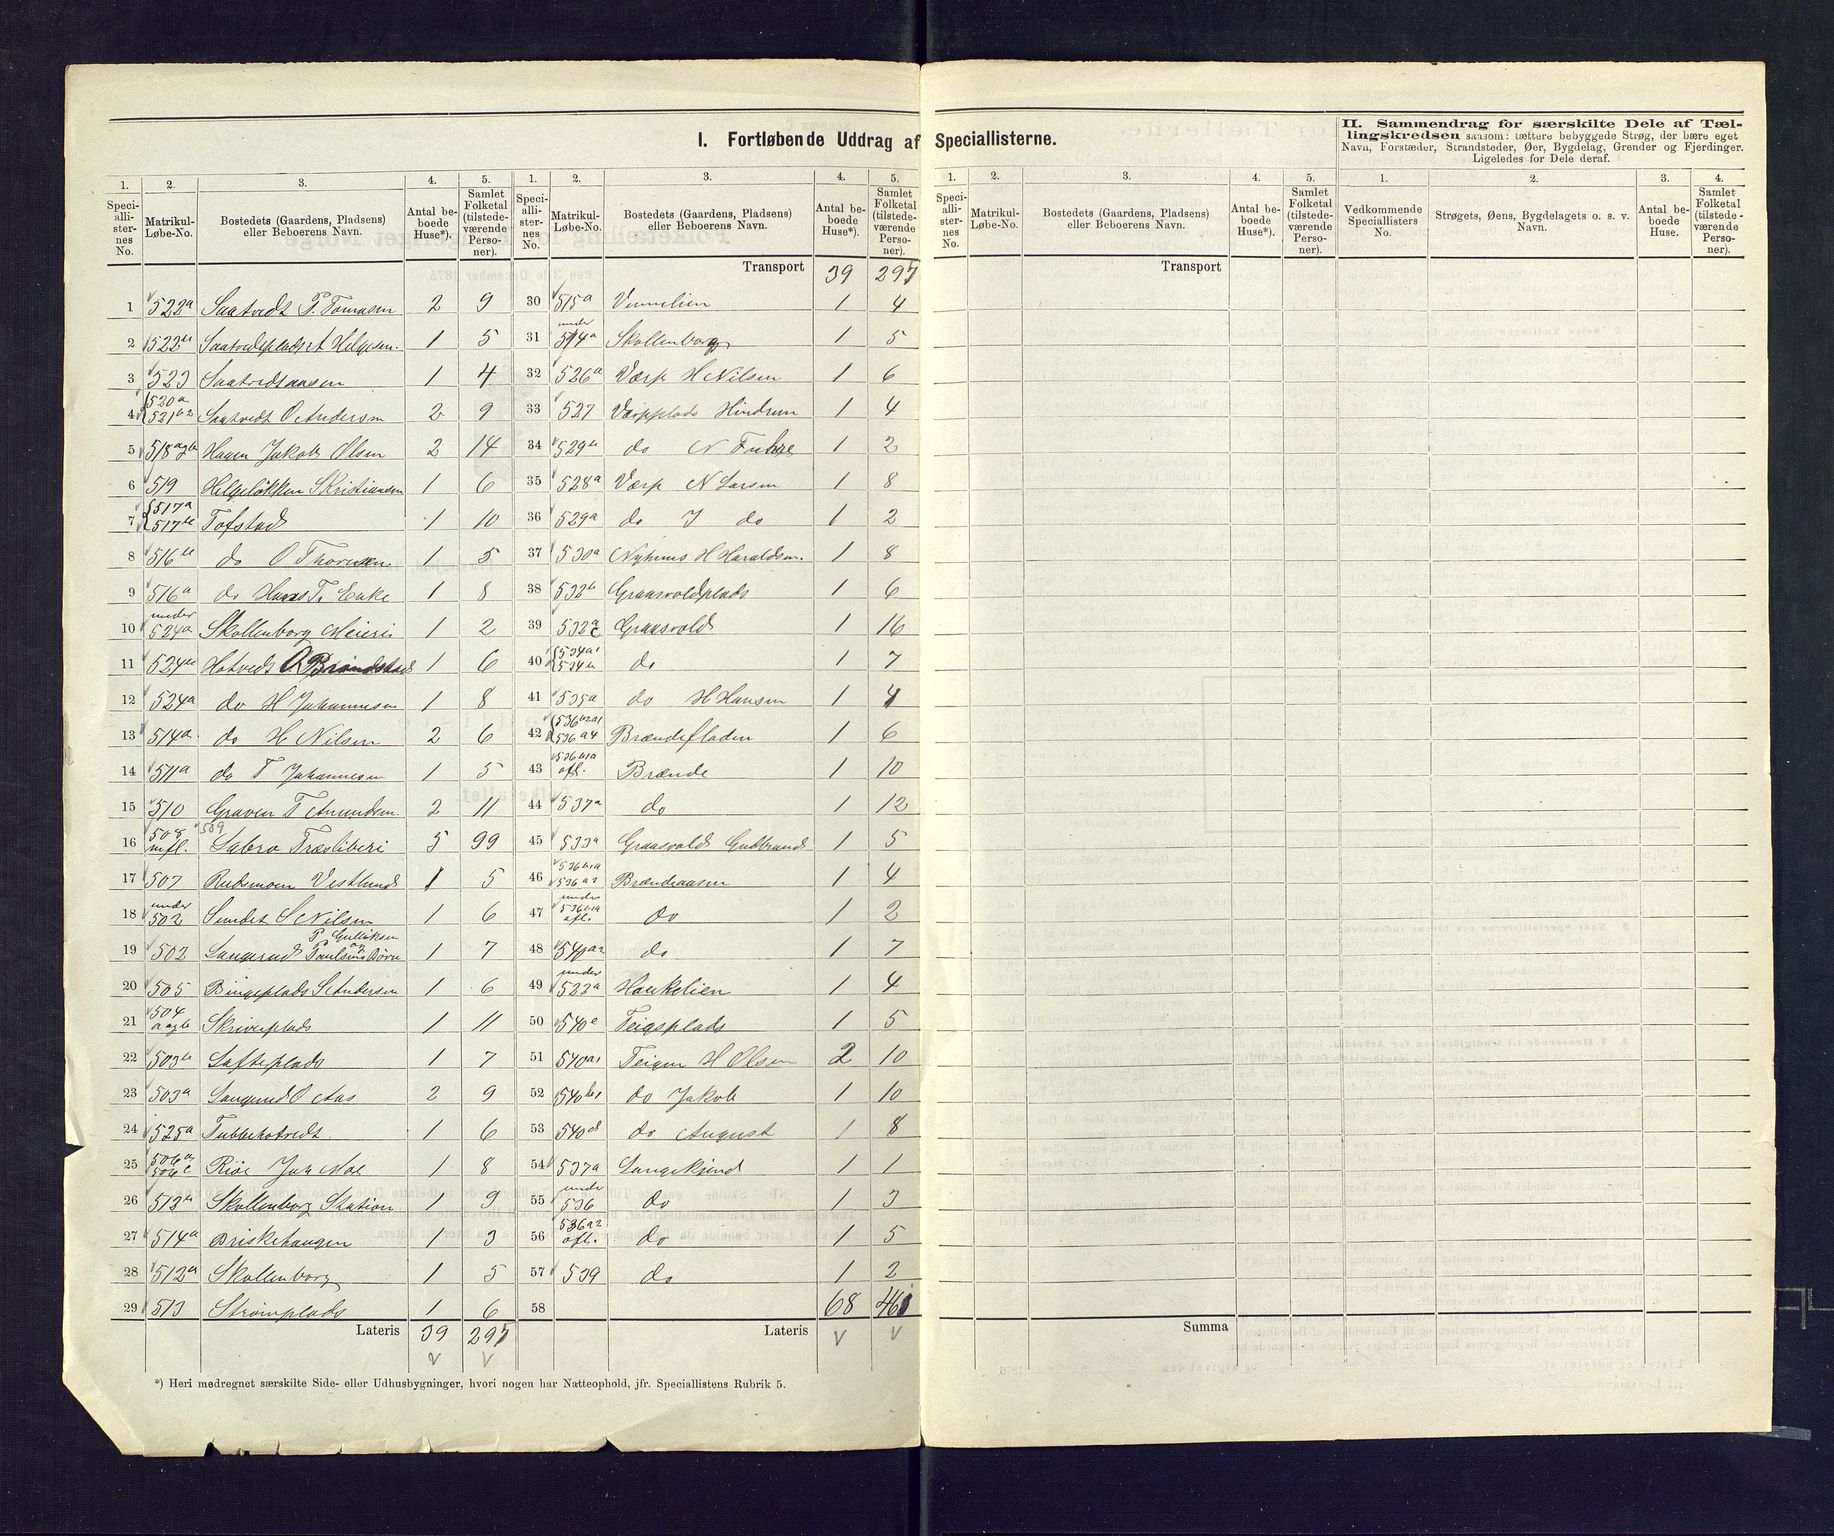 I. Fortløbende Uddrag af Speciallisterne.
1. Speciallisternes No. | 2. Matrikul-Løbe-No. | 3. Bostedets (Gaardens, Pladsens) eller Beboerens Navn. | 4. Antal beboede Huse*). | 5. Samlet Folketal (tilstedeværende Personer).
1 522a Saatvedt P. Tomasen 2 9
2 522b Saatvedtplads A Helgesen 1 5
3 523 Saatvedtaasen 1 4
4 520a 521b2 Saatvedt O Andersen 2 9
5 518a Hagen Jakob Olsen 2 14
6 519 Helgeløkken S Kristiansen 1 6
7 517a 517b Tofstad 1 10
8 516b do O Thoresen 1 5
9 516a do Hans T. Enke 1 8
10 under 524a Skollenborg Meieri 1 2
11 524b Hotvedt O Brændstad 1 6
12 524a do H Johannesen 1 8
13 514a do H Nilsen 2 6
14 511a do T Johannesen 1 5
15 510 Graven T Amundsen 2 11
16 508 509 mfl. Labro Træsliberi 5 99
17 507 Rudsmoen Vestlund 1 5
18 under 502 Sundet S Nilsen 1 6
19 502 Langerud P Gulliksen og Paulsens Børn 1 7
20 505 Bingeplads S Andersen 1 6
21 504 a og b Skriverplads 1 11
22 503b Lofteplads 1 7
23 503a Langerud O Aas 2 9
24 525a Tubbehotvedt 1 6
25 506a 506c Riøe Joh Moe 1 8
26 513b Skollenborg Station 1 9
27 514a Briskehaugen 1 3
28 512a Skollenborg 1 5
29 513 Strømplads 1 6
Lateris 39 295
*) Heri medregnet særskilte Side- eller Udhusbygninger, hvori nogen har Natteophold, jfr. Speciallistens Rubrik 5.
1. Speciallisternes No. | 2. Matrikul-Løbe-No. | 3. Bostedets (Gaardens, Pladsens) eller Beboerens Navn. | 4. Antal beboede Huse*). | 5. Samlet Folketal (tilstedeværende Personer).
Transport 39 295
30 515a Vennelien 1 4
31 under 514a Skollenborg 1 5
32 526a Værp H Nilsen 1 6
33 527 Værpplads Hindrum 1 4
34 529b do N Fuhre 1 2
35 528a Værp N Larsen 1 8
36 529a do J do 1 2
37 530a Nyhuus H Haraldsen 1 8
38 532b Graasvoldplads 1 6
39 532a c Graasvold 1 16
40 534a1 534b do 1 7
41 535a do H Hansen 1 4
42 536a2a1 536a4 Brændefladen 1 6
43 536b1a ofl. Brænde 1 10
44 537a do 1 12
45 533a Graasvold Gudbrand 1 5
46 536b1a 536a2 Brændeaasen 1 4
47 under 536b1a ofl. do 1 2
48 540a2 do 1 7
49 under 522a Haukelien 1 4
50 540a Teigsplads 1 5
51 540a1 Teigen H Olsen 2 10
52 540b1 do Jakob 1 10
53 540d do August 1 8
54 537a Langekjend 1 1
55 under 536 do 1 3
56 536a2 ofl. do 1 5
57 539 do 1 2
58 68 461
Lateris
1. Speciallisternes No. | 2. Matrikul-Løbe-No. | 3. Bostedets (Gaardens, Pladsens) eller Beboerens Navn. | 4. Antal beboede Huse*). | 5. Samlet Folketal (tilstedeværende Personer).
Transport
Summa
II. Sammendrag for særskilte Dele af Tællingskredsen saasom: tættere bebyggede Strøg, der bære eget Navn, Forstæder, Strandsteder, Øer, Bygdelag, Grender og Fjerdinger. Ligeledes for Dele deraf.
1. Vedkommende Speciallisters No. | 2. Strøgets, Øens, Bygdelagets o. s. v. Navn. | 3. Antal beboede Huse. | 4. Samlet Folketal (tilstedeværende Personer).